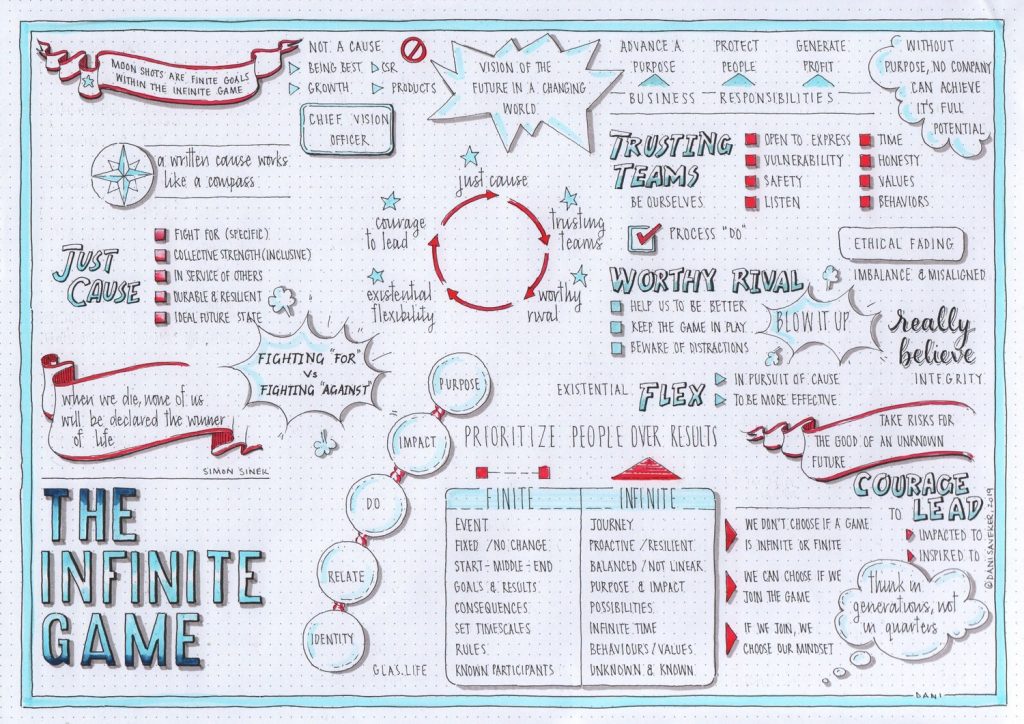 MOON SHOTS ARE FINITE GOALS
WITHIN THE INFINITE GAME
NOT A CAUSE
BEING BEST
CSR
GROWTH
PRODUCTS
CHIEF VISION
OFFICER
VISION OF THE
FUTURE IN A CHANGING
WORLD
ADVANCE A
PURPOSE
PROTECT
PEOPLE
GENERATE
PROFIT
BUSINESS RESPONSIBILITIES
WITHOUT
PURPOSE, NO COMPANY
CAN ACHIEVE
IT'S FULL
POTENTIAL
a written cause works
like a compass
just cause
trusting
teams
worthy
rival
existential
flexibility
courage
to lead
TRUSTING
TEAMS
BE OURSELVES
OPEN TO EXPRESS
VULNERABILITY
SAFETY
LISTEN
TIME
HONESTY
VALUES
BEHAVIORS
PROCESS "DO"
ETHICAL FADING
IMBALANCE & MISALIGNED
JUST
CAUSE
FIGHT FOR (SPECIFIC)
COLLECTIVE STRENGTH (INCLUSIVE)
IN SERVICE OF OTHERS
DURABLE & RESILIENT
IDEAL FUTURE STATE
WORTHY RIVAL
HELP US TO BE BETTER
KEEP THE GAME IN PLAY
BEWARE OF DISTRACTIONS
BLOW IT UP
really
believe
INTEGRITY
FIGHTING "FOR"
Vs
FIGHTING "AGAINST"
when we die, none of us
will be declared the winner
of life
SIMON SINEK
EXISTENTIAL FLEX
IN PURSUIT OF CAUSE
TO BE MORE EFFECTIVE
PURPOSE
IMPACT
DO
RELATE
IDENTITY
PRIORITIZE PEOPLE OVER RESULTS
TAKE RISKS FOR
THE GOOD OF AN UNKNOWN
FUTURE
COURAGE
TO LEAD
IMPACTED TO
INSPIRED TO
THE
INFINITE
GAME
GLAS.LIFE
FINITE
INFINITE
EVENT
JOURNEY
FIXED / NO CHANGE
PROACTIVE / RESILIENT
START-MIDDLE-END
BALANCED / NOT LINEAR
GOALS & RESULTS
PURPOSE & IMPACT
CONSEQUENCES
POSSIBILITIES
SET TIMESCALES
INFINITE TIME
RULES
BEHAVIOURS / VALUES
KNOWN PARTICIPANTS
UNKNOWN & KNOWN
WE DON'T CHOOSE IF A GAME
IS INFINITE OR FINITE
WE CAN CHOOSE IF WE
JOIN THE GAME
IF WE JOIN, WE
CHOOSE OUR MINDSET
think in
generations, not
in quarters
©DANI SAVEKER, 2019
DANI